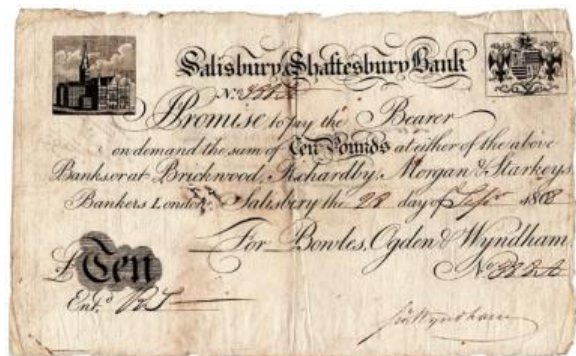 Salisbury & Shaftesbury Bank
Promise to pay the Bearer
on demand the sum of Ten Pounds at either of the above
Banks or at Brickwood, Richardby, Morgan & Starkeys
Bankers London. Salisbury the 28 day of 1808
For Bowles, Ogden & Wyndham
£ Ten
No
Entd
Wyndham